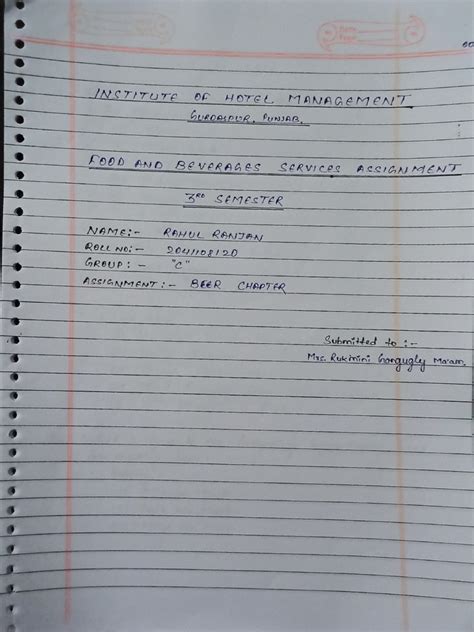 INSTITUTE OF HOTEL MANAGEMENT
GURDASPUR, PUNJAB.
FOOD AND BEVERAGES SERVICES ASSIGNMENT
3RD SEMESTER
NAME:- RAHUL RANJAN
ROLL NO:- 2041108120
GROUP:- "C"
ASSIGNMENT:- BEER CHAPTER
Submitted to :-
Mrs. Rukmini Ma'am.